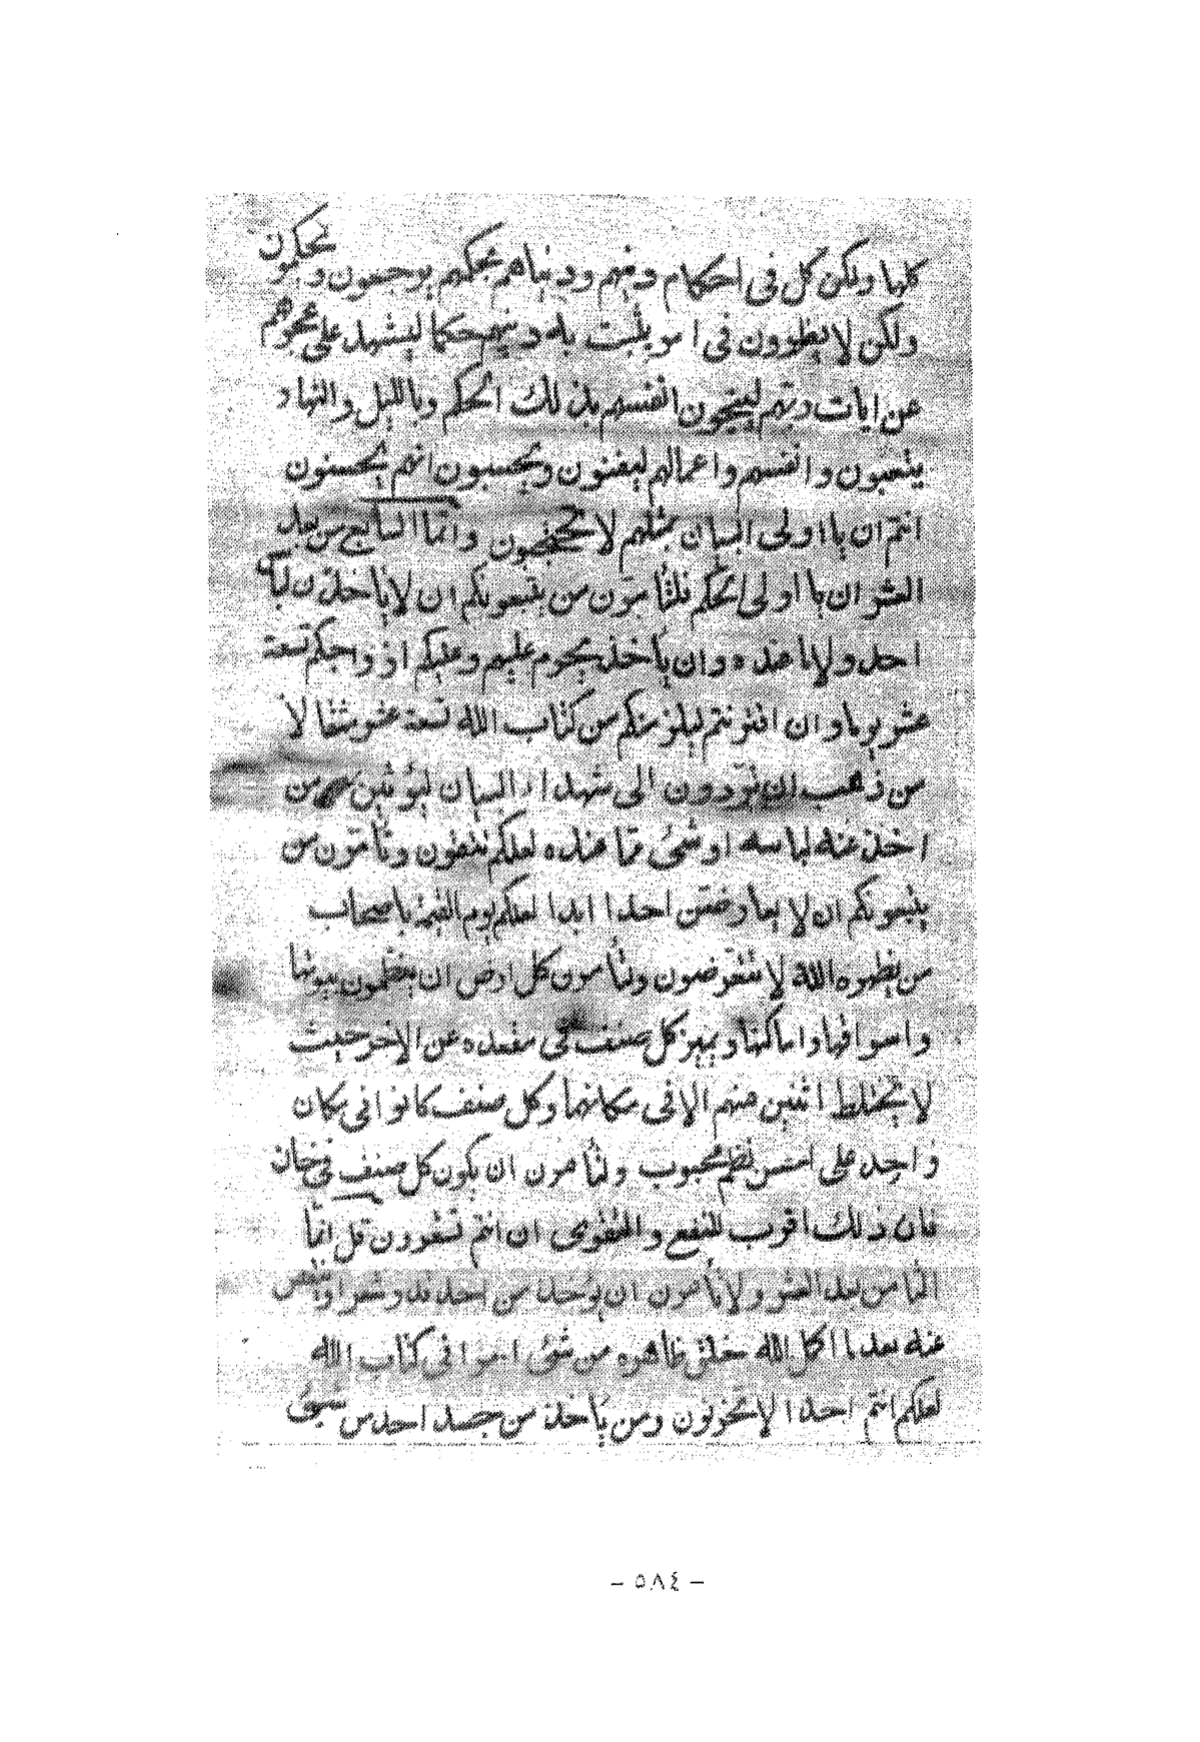 كلها ولكن كل فى احكام دينهم ودنياهم بحكمهم يرجعون ويحكمون
ولكن لا ينظرون فى امر يثبت به دينهم حكما ليشهد على
عن ايات ربهم ليحتجبون انفسهم بذلك الحكم وبالليل والنهار
يتعبون وانفسهم واعمالهم ليفنون ويحسبون انهم يحسنون
انتم ان يا اولى البيان بمثلهم لا تحتجبون وانما السابع من بعد
العشر ان يا اولى الحكم فلتأمرون من يتبعونكم ان لا يأخذن لباس
احد ولا ما عنده وان يأخذ يحرم عليهم وعليكم ازواجكم تسعة
عشر يوما وان اقترنتم ليلزمنكم من كتاب الله تسعة عشر مثقالا
من ذهب ان تردون الى شهداء البيان ليؤتين من
اخذ عنه لباسه او شىء مما عنده لعلكم تتقون وتأمرون من
يتبعونكم ان لا يعارضن احدا ابدا لعلكم يوم القيمة باصحاب
من يظهره الله لا تتعرضون ولتأمرون كل ارض ان ينظمون بيوتها
واسواقها واماكنها ويميز كل صنف فى مقعده عن الاخر حيث
لا يختلط اثنين منهم الا فى مكانهما وكل صنف كانوا فى مكان
واحد على احسن نظم محبوب ولتأمرن ان يكون كل صنف فى خان
فان ذلك اقرب للنفع والتقوى ان انتم تشعرون قل انما
الثامن بعد العشر ولا تأمرون ان يؤخذ من احد قدر شعر او ينقص
عنه بعد ما اكمل الله خلق ظاهره من شىء امرا فى كتاب الله
لعلكم انتم احدا لا تحزنون ومن يأخذ من جسد احد من شىء
- ٥٨٤ -